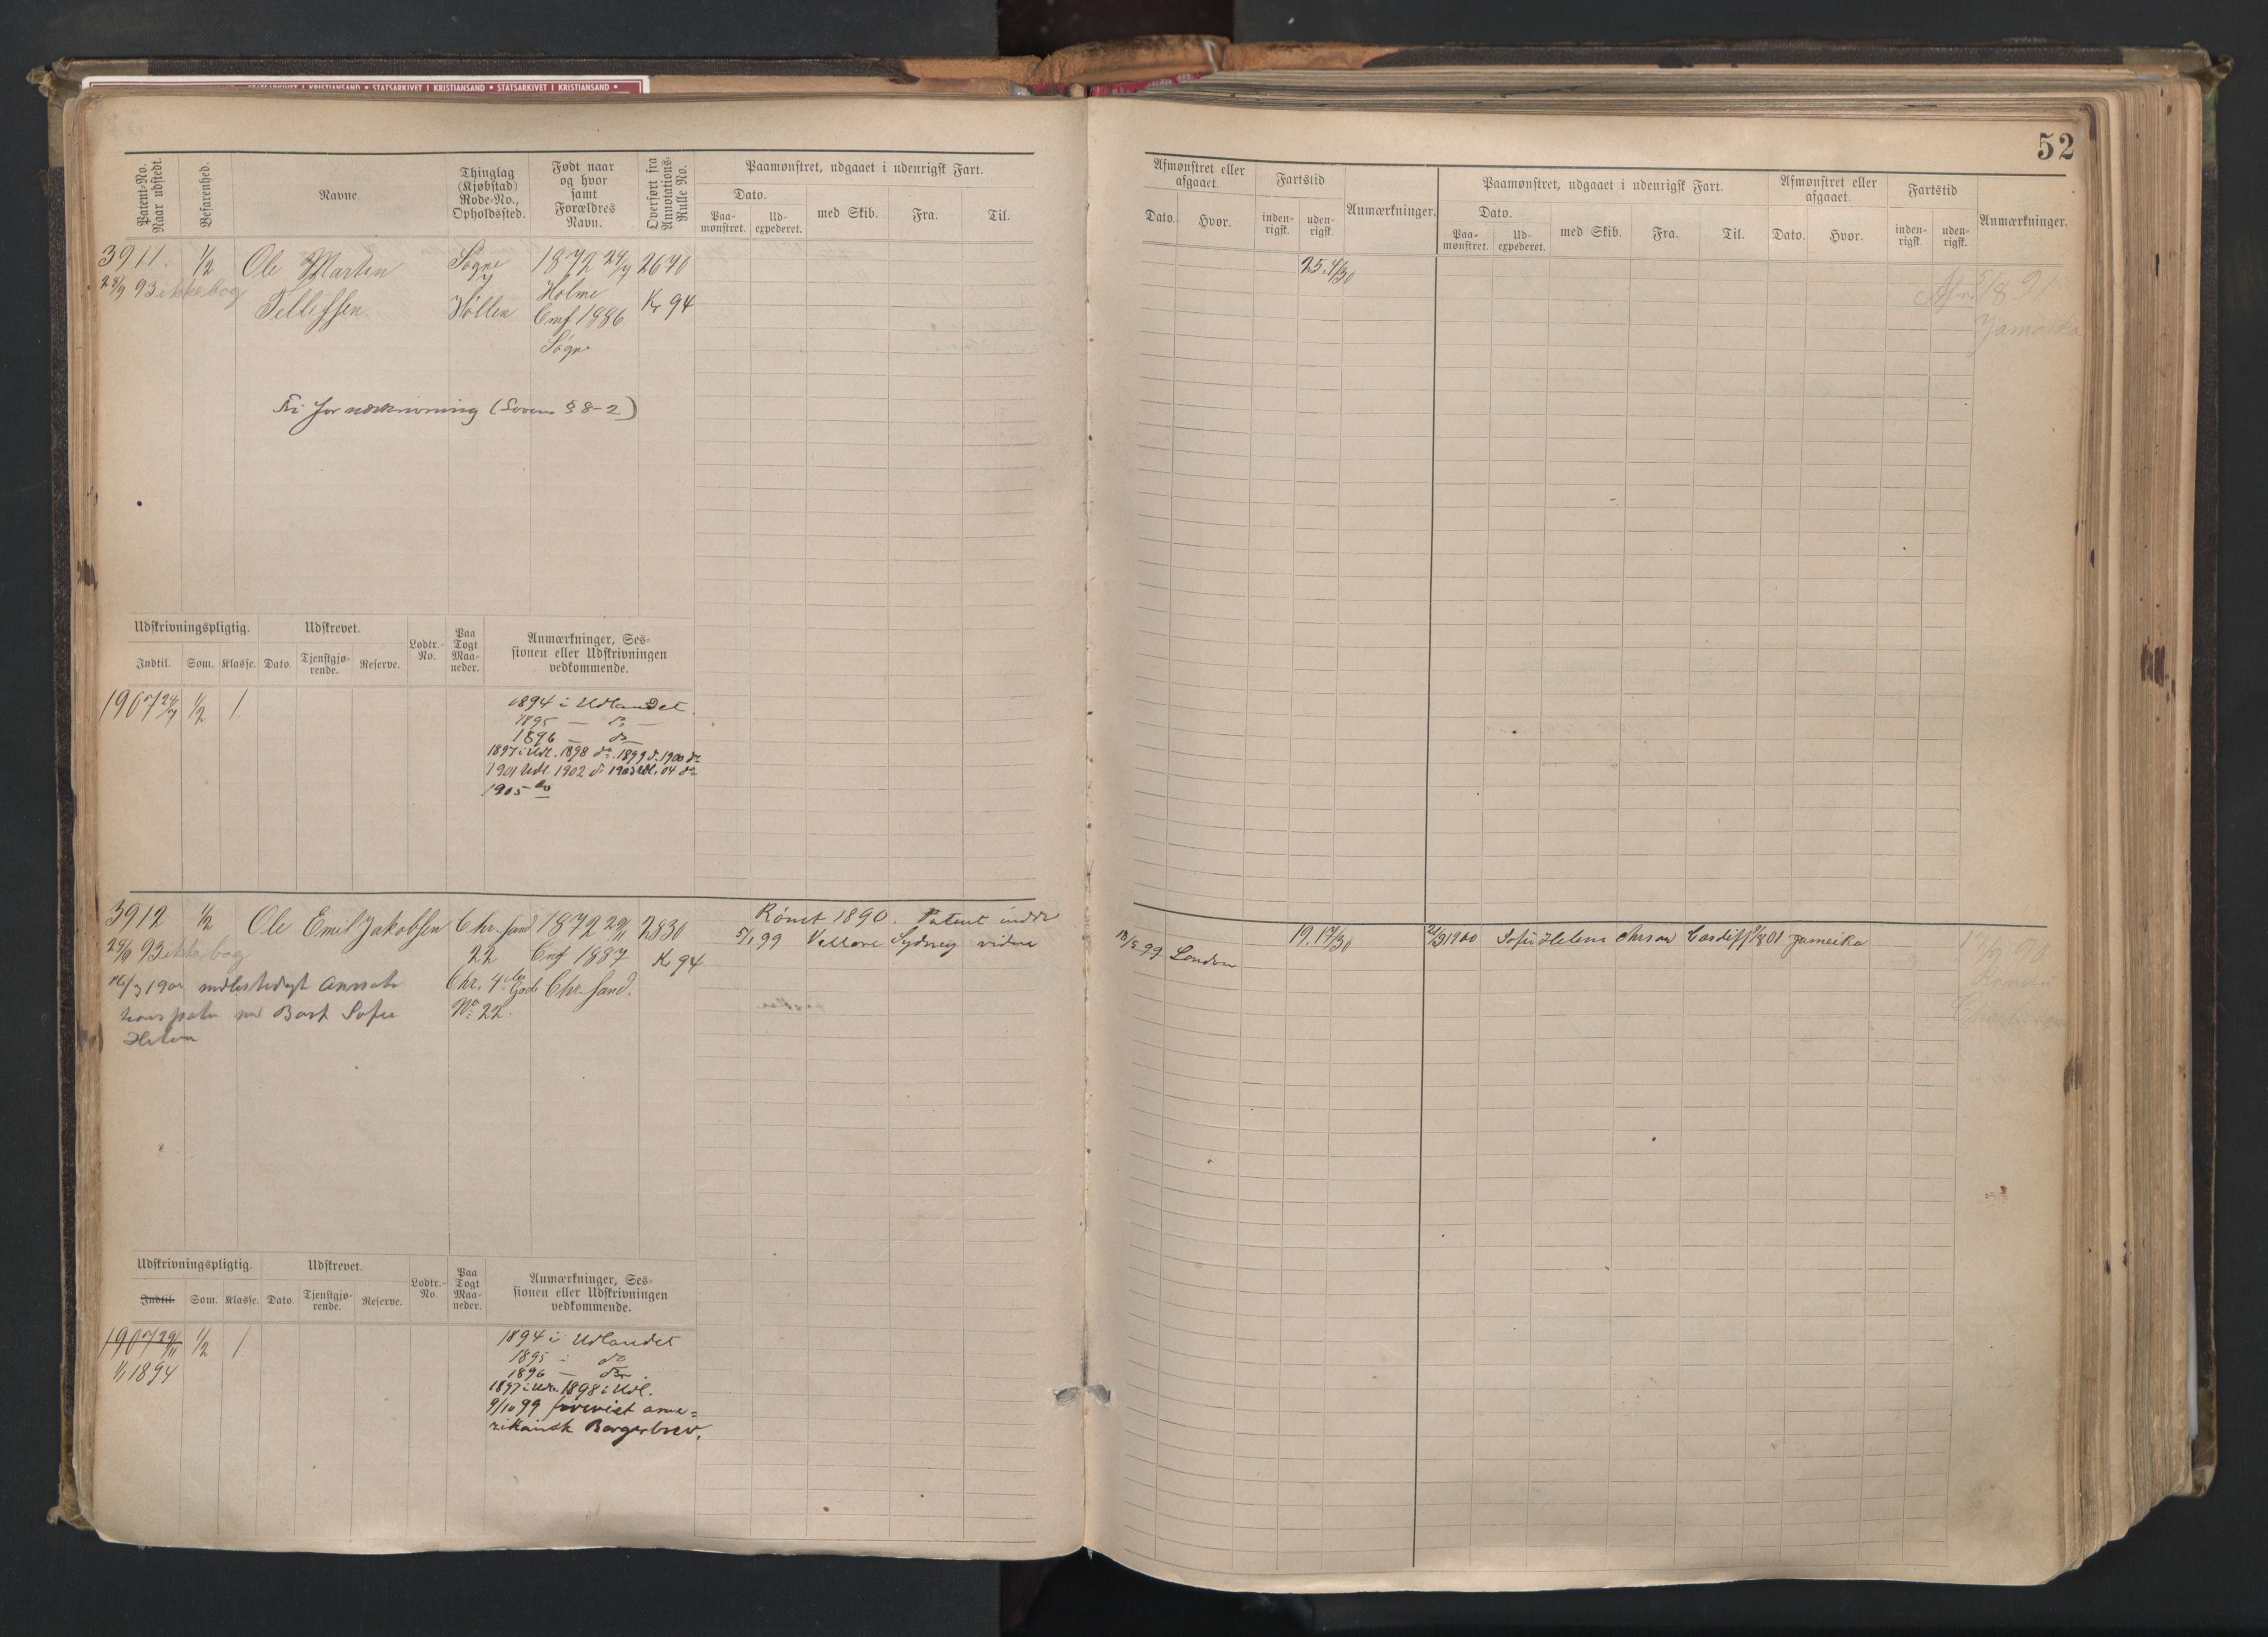 STATSARKIVET I KRISTIANSAND * STATSARKIVET I KRISTIANSAND * STATSARKIVET I KRISTIANSAND *
52
Patent-No. Naar udstedt.
Befarenhed.
Navne
Thinglag (Kjøbstad) Rode-No., Opholdssted.
Født naar og hvor samt Forældres Navn.
Overført fra Annotations-Rulle No.
Paamønstret, udgaaet i udenrigsk Fart.
Dato.
Paa-mønstret.
Ud-expederet.
med Skib.
Fra.
Til.
Afmønstret eller afgaaet.
Dato.
Hvor.
Fartstid
inden-rigsk.
uden-rigsk.
Anmærkninger.
Paamønstret, udgaaet i udenrigsk Fart.
Dato.
Paa-mønstret.
Ud-expederet.
med Skib.
Fra.
Til.
Afmønstret eller afgaaet.
Dato.
Hvor.
Fartstid
inden-rigsk.
uden-rigsk.
Anmærkninger.
3911. 1/2 Ole Martin Søgne 1872 24/7 2670
24/9 93 ikke bog Tellefsen Høllen Holme Kr 94
Cmf 1886
Søgne
25.4/30
5/8 91
Jamaika
Fri for udskrivning (Lovens § 8-2)
Udskrivningspligtig.
Indtil.
Som.
Klasse.
Udskrevet.
Dato.
Tjenstgjø-rende.
Reserve.
Lodtr.-No.
Paa Togt Maa-neder.
Anmærkninger, Ses-sionen eller Udskrivningen vedkommende.
1907 24/7 1/2 1.
1894 i Udlandet.
1895 — do —
1896 — do
1897 i Udl. 1898 do. 1899 do 1900 do
1901 Udl. 1902 do 1903 Udl. 04 do
1905 do
3912 1/2 Ole Emil Jakobsen Chr.sand 1872 29/11 2830
29/9 93 ikke bog 22 Cmf 1887 K 94
Chr. Chr. sand.
No 22.
Bark Sofie
Helene
Rømt 1890. Patent indd
5/1 99 Vellore Sydney videre
13/5 99 London
19.17/30
1900 Sofie Helene Chrsan Cardiff 01 Jameika
Udskrivningspligtig.
Indtil.
Som.
Klasse.
Udskrevet.
Dato.
Tjenstgjø-rende.
Reserve.
Lodtr.-No.
Paa Togt Maa-neder.
Anmærkninger, Ses-sionen eller Udskrivningen vedkommende.
1907 29/11 1/2 1
1/1 1894
1894 i Udlandet
1895 — do
1896 — do.
1897 i Udl. 1898 i Udl.
9/10 99 forevist ame=
rikansk Borgerbrev.